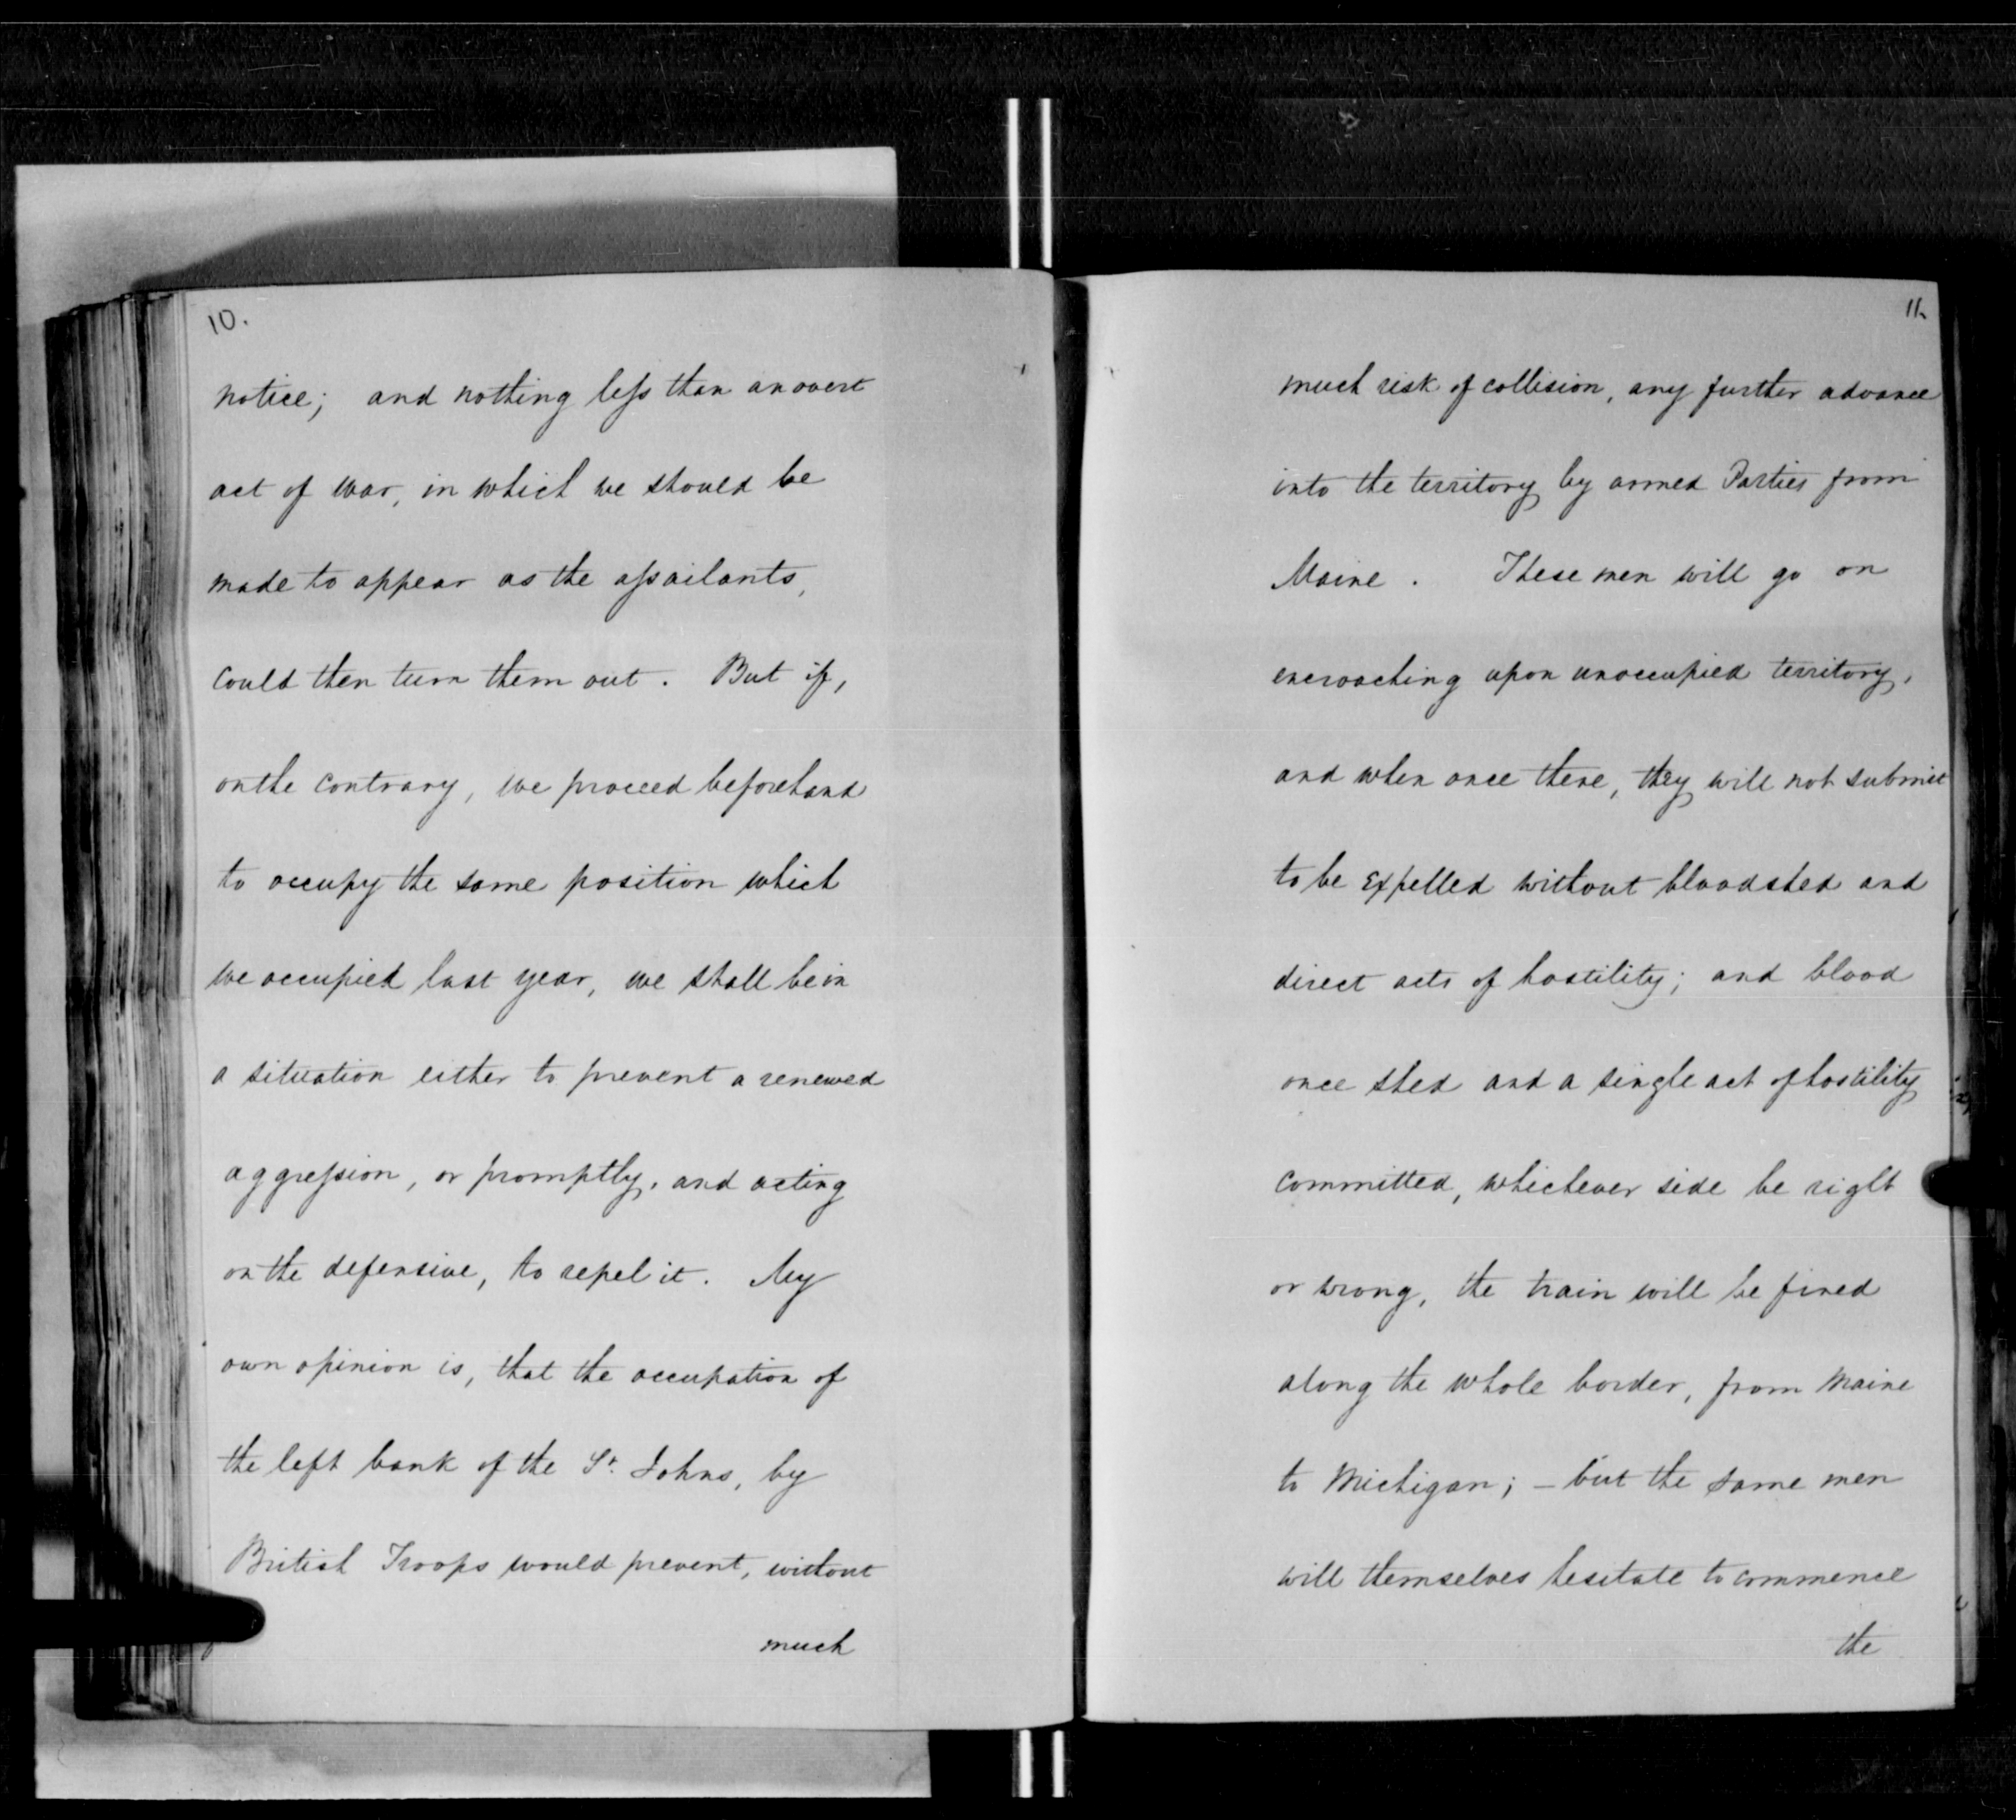 10.
notice; and nothing less than an overt
act of war, in which we should be
made to appear as the assailants,
could then turn them out. But if,
on the contrary, we proceed beforehand
to occupy the same position which
we occupied last year, we shall be in
a situation either to prevent a renewed
aggression, or promptly, and acting
on the defensive, to repel it. My
own opinion is, that the occupation of
the left bank of the St. Johns, by
British Troops would prevent, without
much
11.
much risk of collision, any further advance
into the territory by armed Parties from
Maine. These men will go on
encroaching upon unoccupied territory,
and when once there, they will not submit
to be expelled without bloodshed and
direct acts of hostility; and blood
once shed and a single act of hostility
committed, whichever side be right
or wrong, the train will be fired
along the whole border, from Maine
to Michigan; – but the same men
will themselves hesitate to commence
the